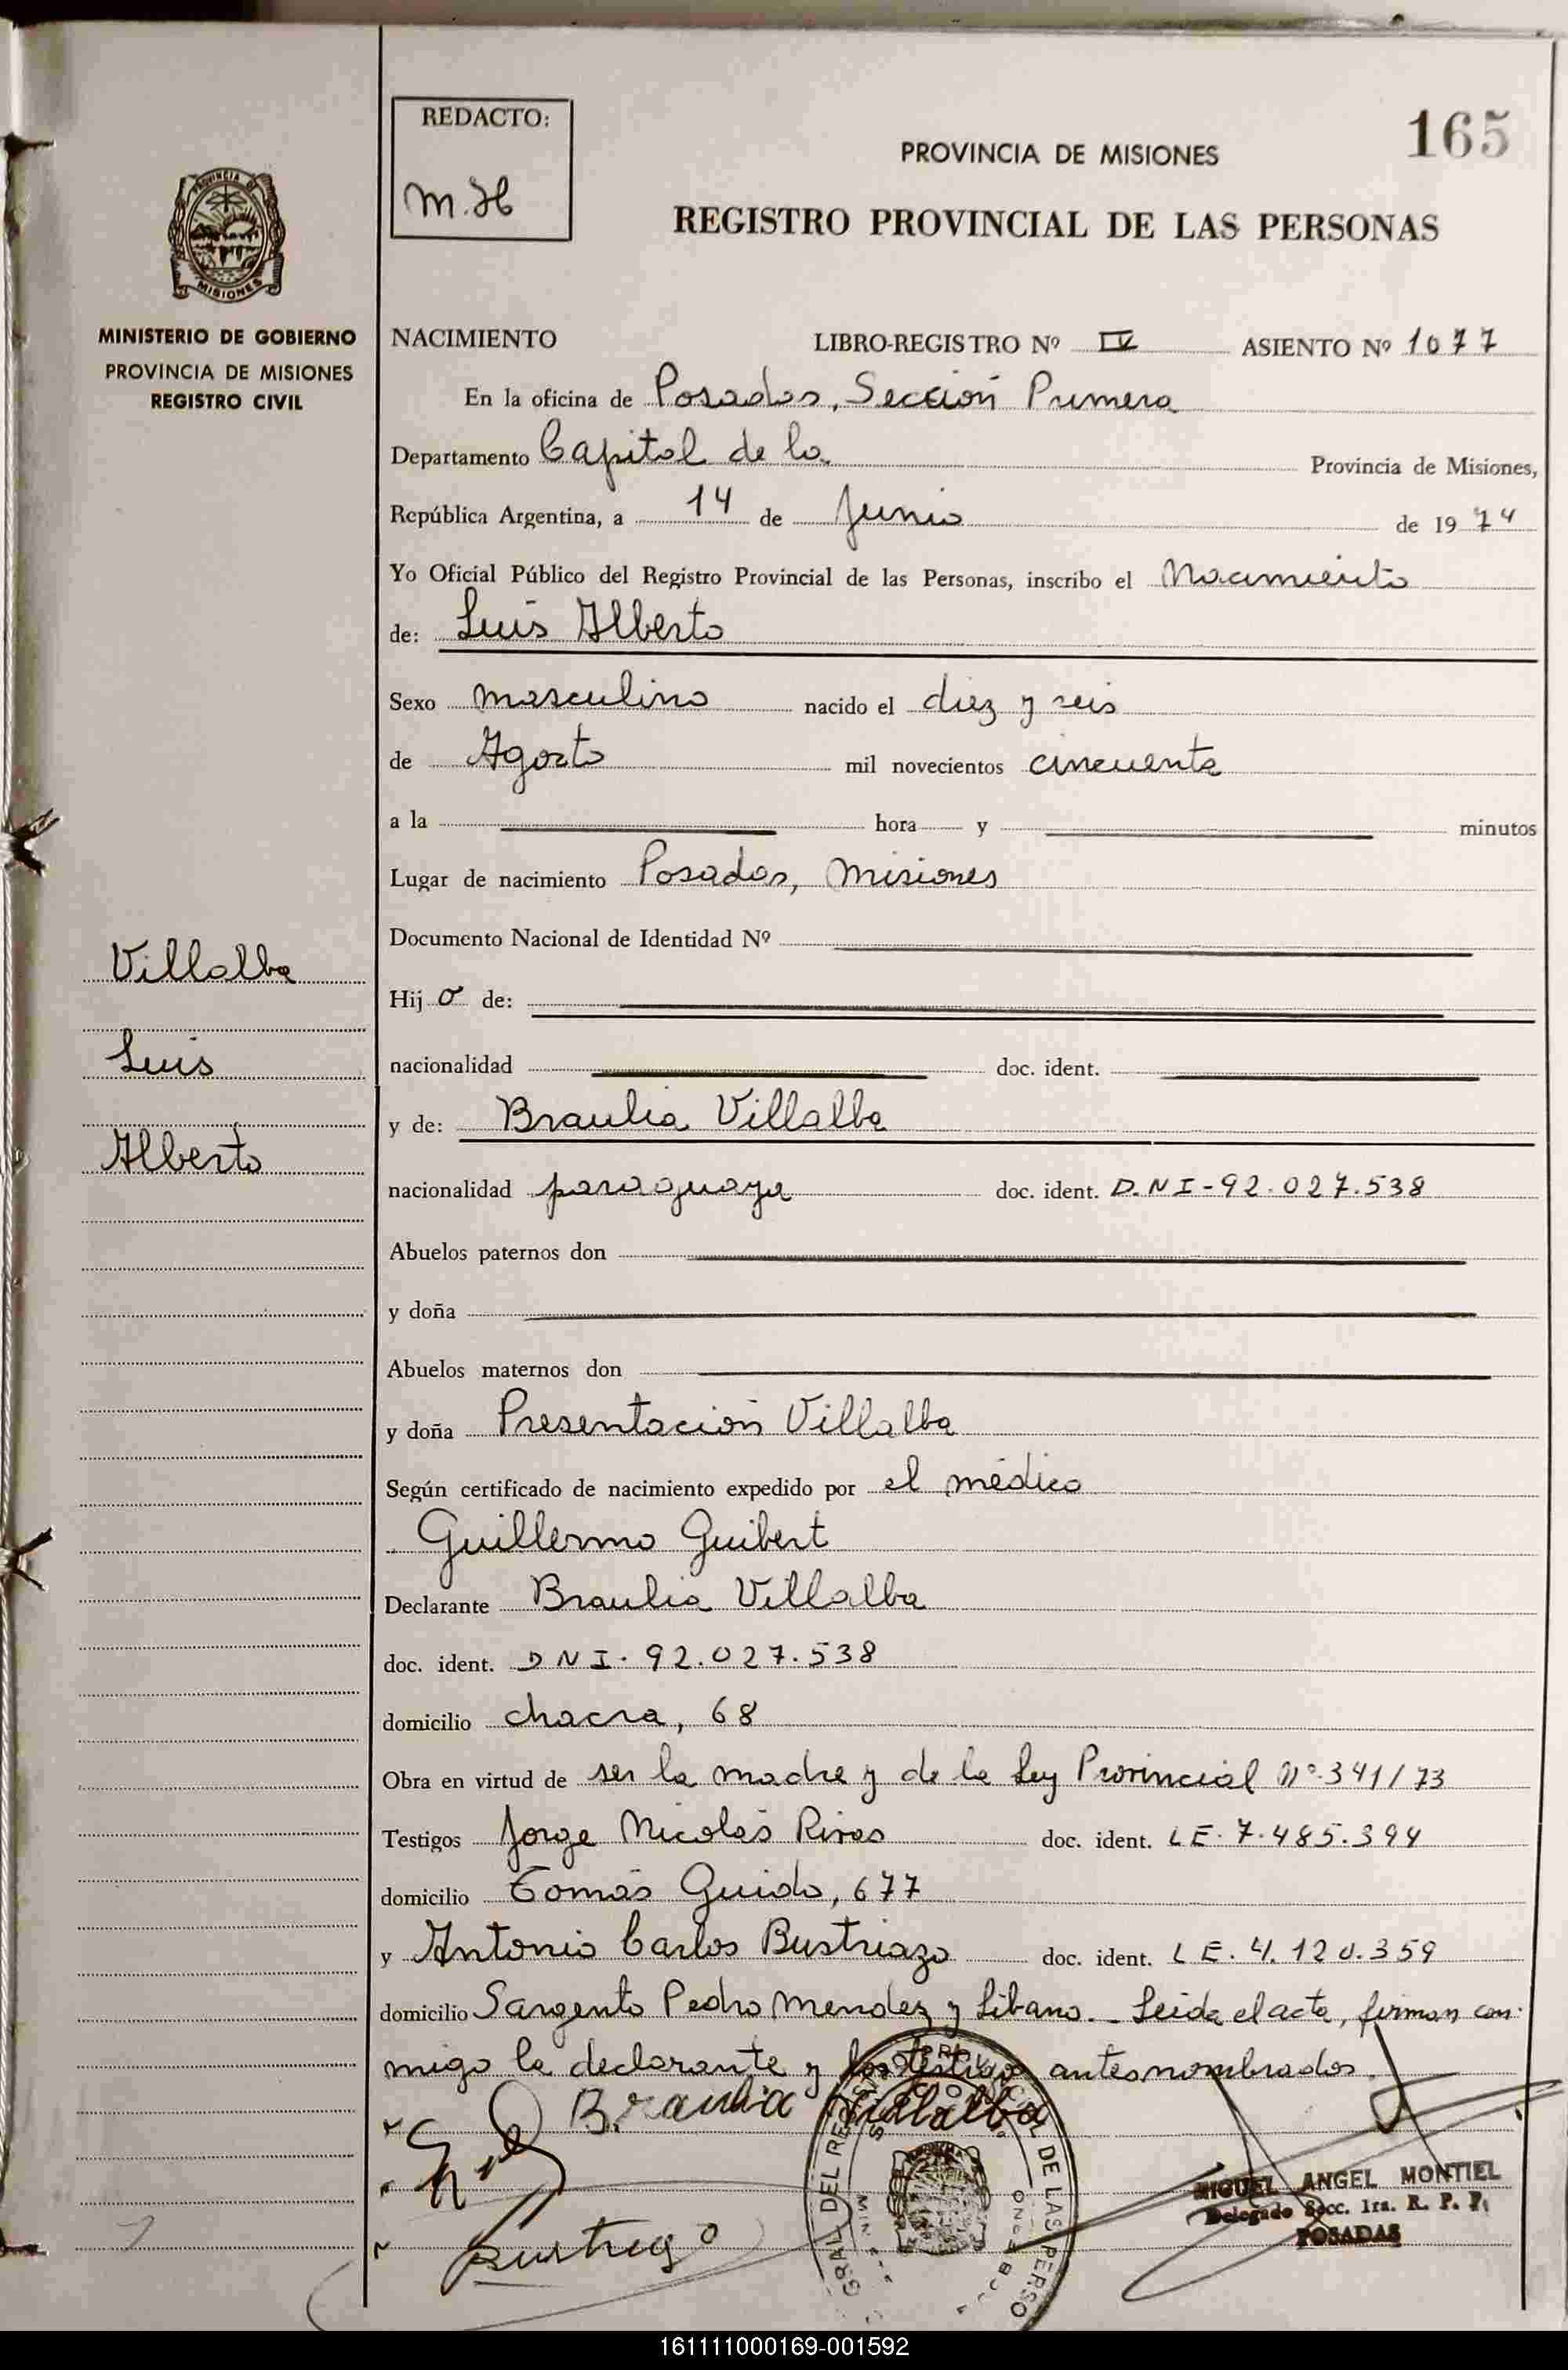 165
REDACTO:
M.H
PROVINCIA DE MISIONES
REGISTRO PROVINCIAL DE LAS PERSONAS
PROVINCIA DE
MISIONES
MINISTERIO DE GOBIERNO
PROVINCIA DE MISIONES
REGISTRO CIVIL
NACIMIENTO LIBRO-REGISTRO Nº IV ASIENTO Nº 1077
En la oficina de Posadas, Sección Primera
Departamento Capital de la Provincia de Misiones,
República Argentina, a 14 de Junio de 1974
Yo Oficial Público del Registro Provincial de las Personas, inscribo el Nacimiento
de: Luis Alberto
Sexo masculino nacido el diez y seis
de Agosto mil novecientos cincuenta
a la hora y minutos
Lugar de nacimiento Posadas, Misiones
Documento Nacional de Identidad Nº
Villalba
Luis
Alberto
Hijo de:
nacionalidad doc. ident.
y de: Braulia Villalba
nacionalidad paraguaya doc. ident. D.N I-92.027.538
Abuelos paternos don
y doña
Abuelos maternos don
y doña Presentación Villalba
Según certificado de nacimiento expedido por el médico
Guillermo Guibert
Declarante Braulia Villalba
doc. ident. D N I. 92.027.538
domicilio chacra, 68
Obra en virtud de ser la madre y de la Ley Provincial Nº 341/73
Testigos Jorge Nicolás Rivas doc. ident. L E. 7.485.394
domicilio Tomás Guido, 677
y Antonio Carlos Bustriazo doc. ident. L E. 4.120.359
domicilio Sargento Pedro Mendez y Libano.- Leida el acta, firman con-
migo la declarante y los testigos antesnombrados.
Braulia Villalba
MIGUEL ANGEL MONTIEL
Delegado Secc. 1ra. R. P. P.
POSADAS
161111000169-001592